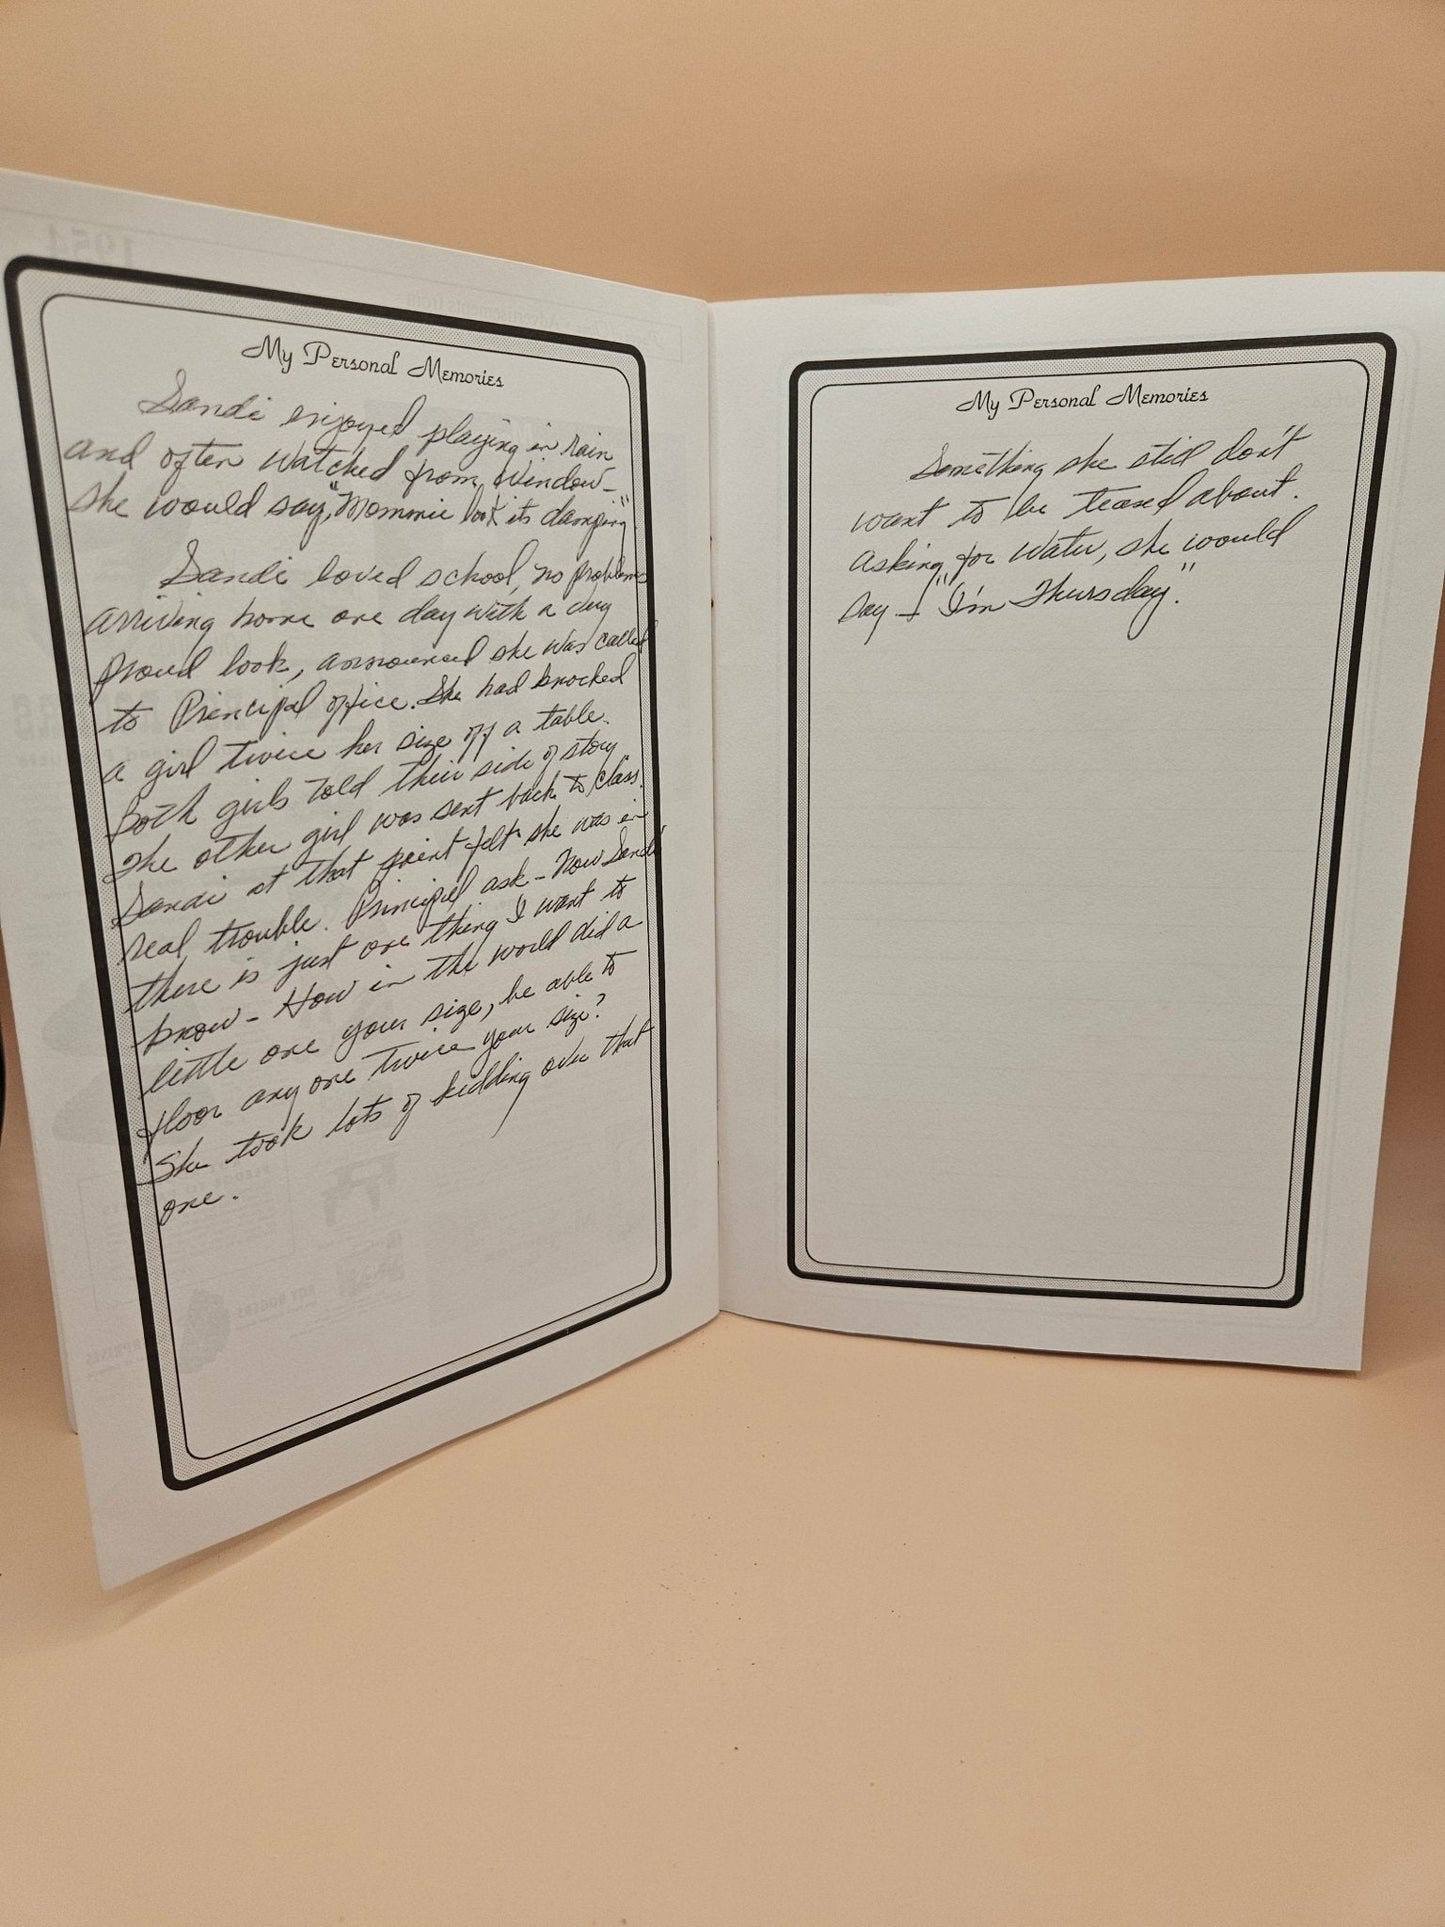 My Personal Memories
Sandi enjoyed playing in rain
and often watched from window –
she would say, "Mommie look its damping"
Sandi loved school, no problems
arriving home one day with a
proud look, announced she was called
to Principal office. She had knocked
a girl twice her size off a table.
Both girls told their side of story
The other girl was sent back to class.
Sandi at that point felt she was in
real trouble. Principal ask – Now Sandi
there is just one thing I want to
know – How in the world did a
little one your size, be able to
floor any one twice your size?
She took lots of kidding over that
one.
My Personal Memories
Something she still don't
want to be teased about.
asking for water, she would
say – "I'm Thursday."
1954